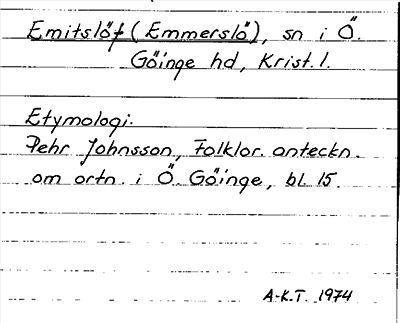 Emitslöf (Emmerslö), sn i Ö.
Göinge hd, Krist. l.
Etymologi.
Pehr Johnsson, Folklor. anteckn.
om ortn. i Ö. Göinge, bl. 15.
A-K.T. 1974